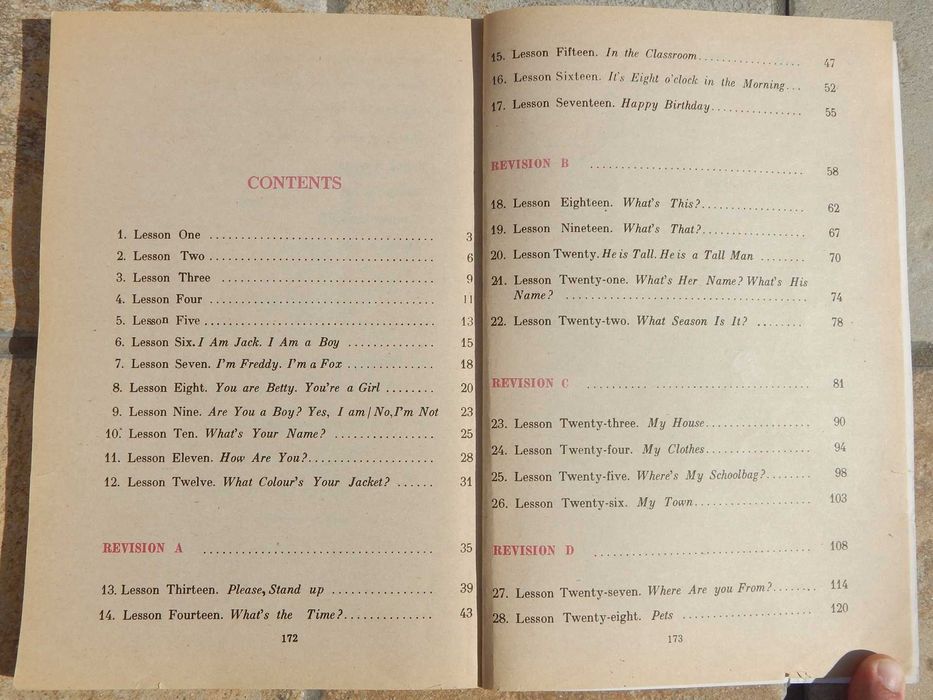 CONTENTS
1. Lesson One .................................. 3
2. Lesson Two .................................. 6
3. Lesson Three .................................. 9
4. Lesson Four .................................. 11
5. Lesson Five .................................. 13
6. Lesson Six. I Am Jack. I Am a Boy .............. 15
7. Lesson Seven. I'm Freddy. I'm a Fox .............. 18
8. Lesson Eight. You are Betty. You're a Girl ........ 20
9. Lesson Nine. Are You a Boy? Yes, I am/No, I'm Not 23
10. Lesson Ten. What's Your Name? ................ 25
11. Lesson Eleven. How Are You?.................... 28
12. Lesson Twelve. What Colour's Your Jacket? ...... 31
REVISION A .................................. 35
13. Lesson Thirteen. Please, Stand up ................ 39
14. Lesson Fourteen. What's the Time?.............. 43
172
15. Lesson Fifteen. In the Classroom................. 47
16. Lesson Sixteen. It's Eight o'clock in the Morning... 52
17. Lesson Seventeen. Happy Birthday............... 55
REVISION B .................................. 58
18. Lesson Eighteen. What's This?................ 62
19. Lesson Nineteen. What's That?................ 67
20. Lesson Twenty. He is Tall. He is a Tall Man ........ 70
21. Lesson Twenty-one. What's Her Name? What's His
Name? .................................. 74
22. Lesson Twenty-two. What Season Is It? ........ 78
REVISION C .................................. 81
23. Lesson Twenty-three. My House................. 90
24. Lesson Twenty-four. My Clothes................. 94
25. Lesson Twenty-five. Where's My Schoolbag?........ 98
26. Lesson Twenty-six. My Town.................. 103
REVISION D .................................. 108
27. Lesson Twenty-seven. Where Are you From?....... 114
28. Lesson Twenty-eight. Pets .................... 120
173